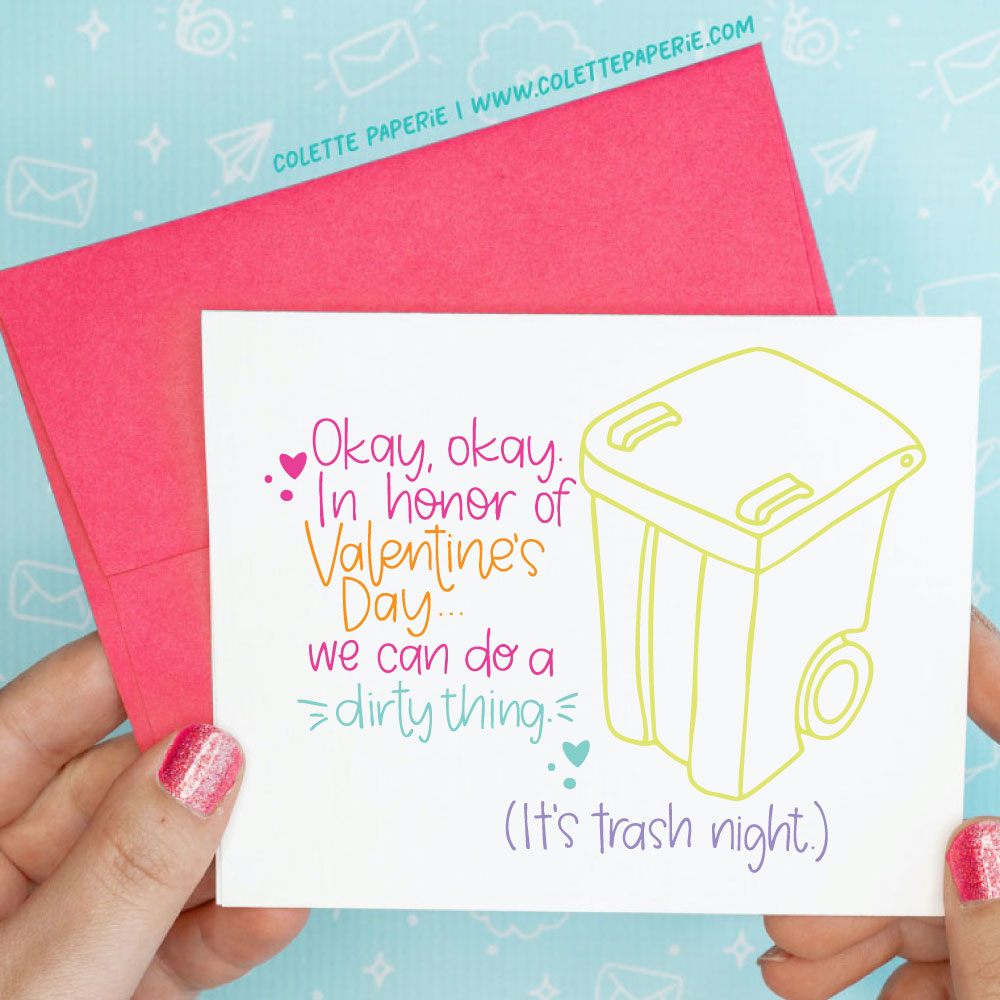 COLETTE PAPERiE | WWW.COLETTEPAPERiE.COM
Okay, okay.
In honor of
Valentine's
Day...
we can do a
dirty thing.
(It's trash night.)